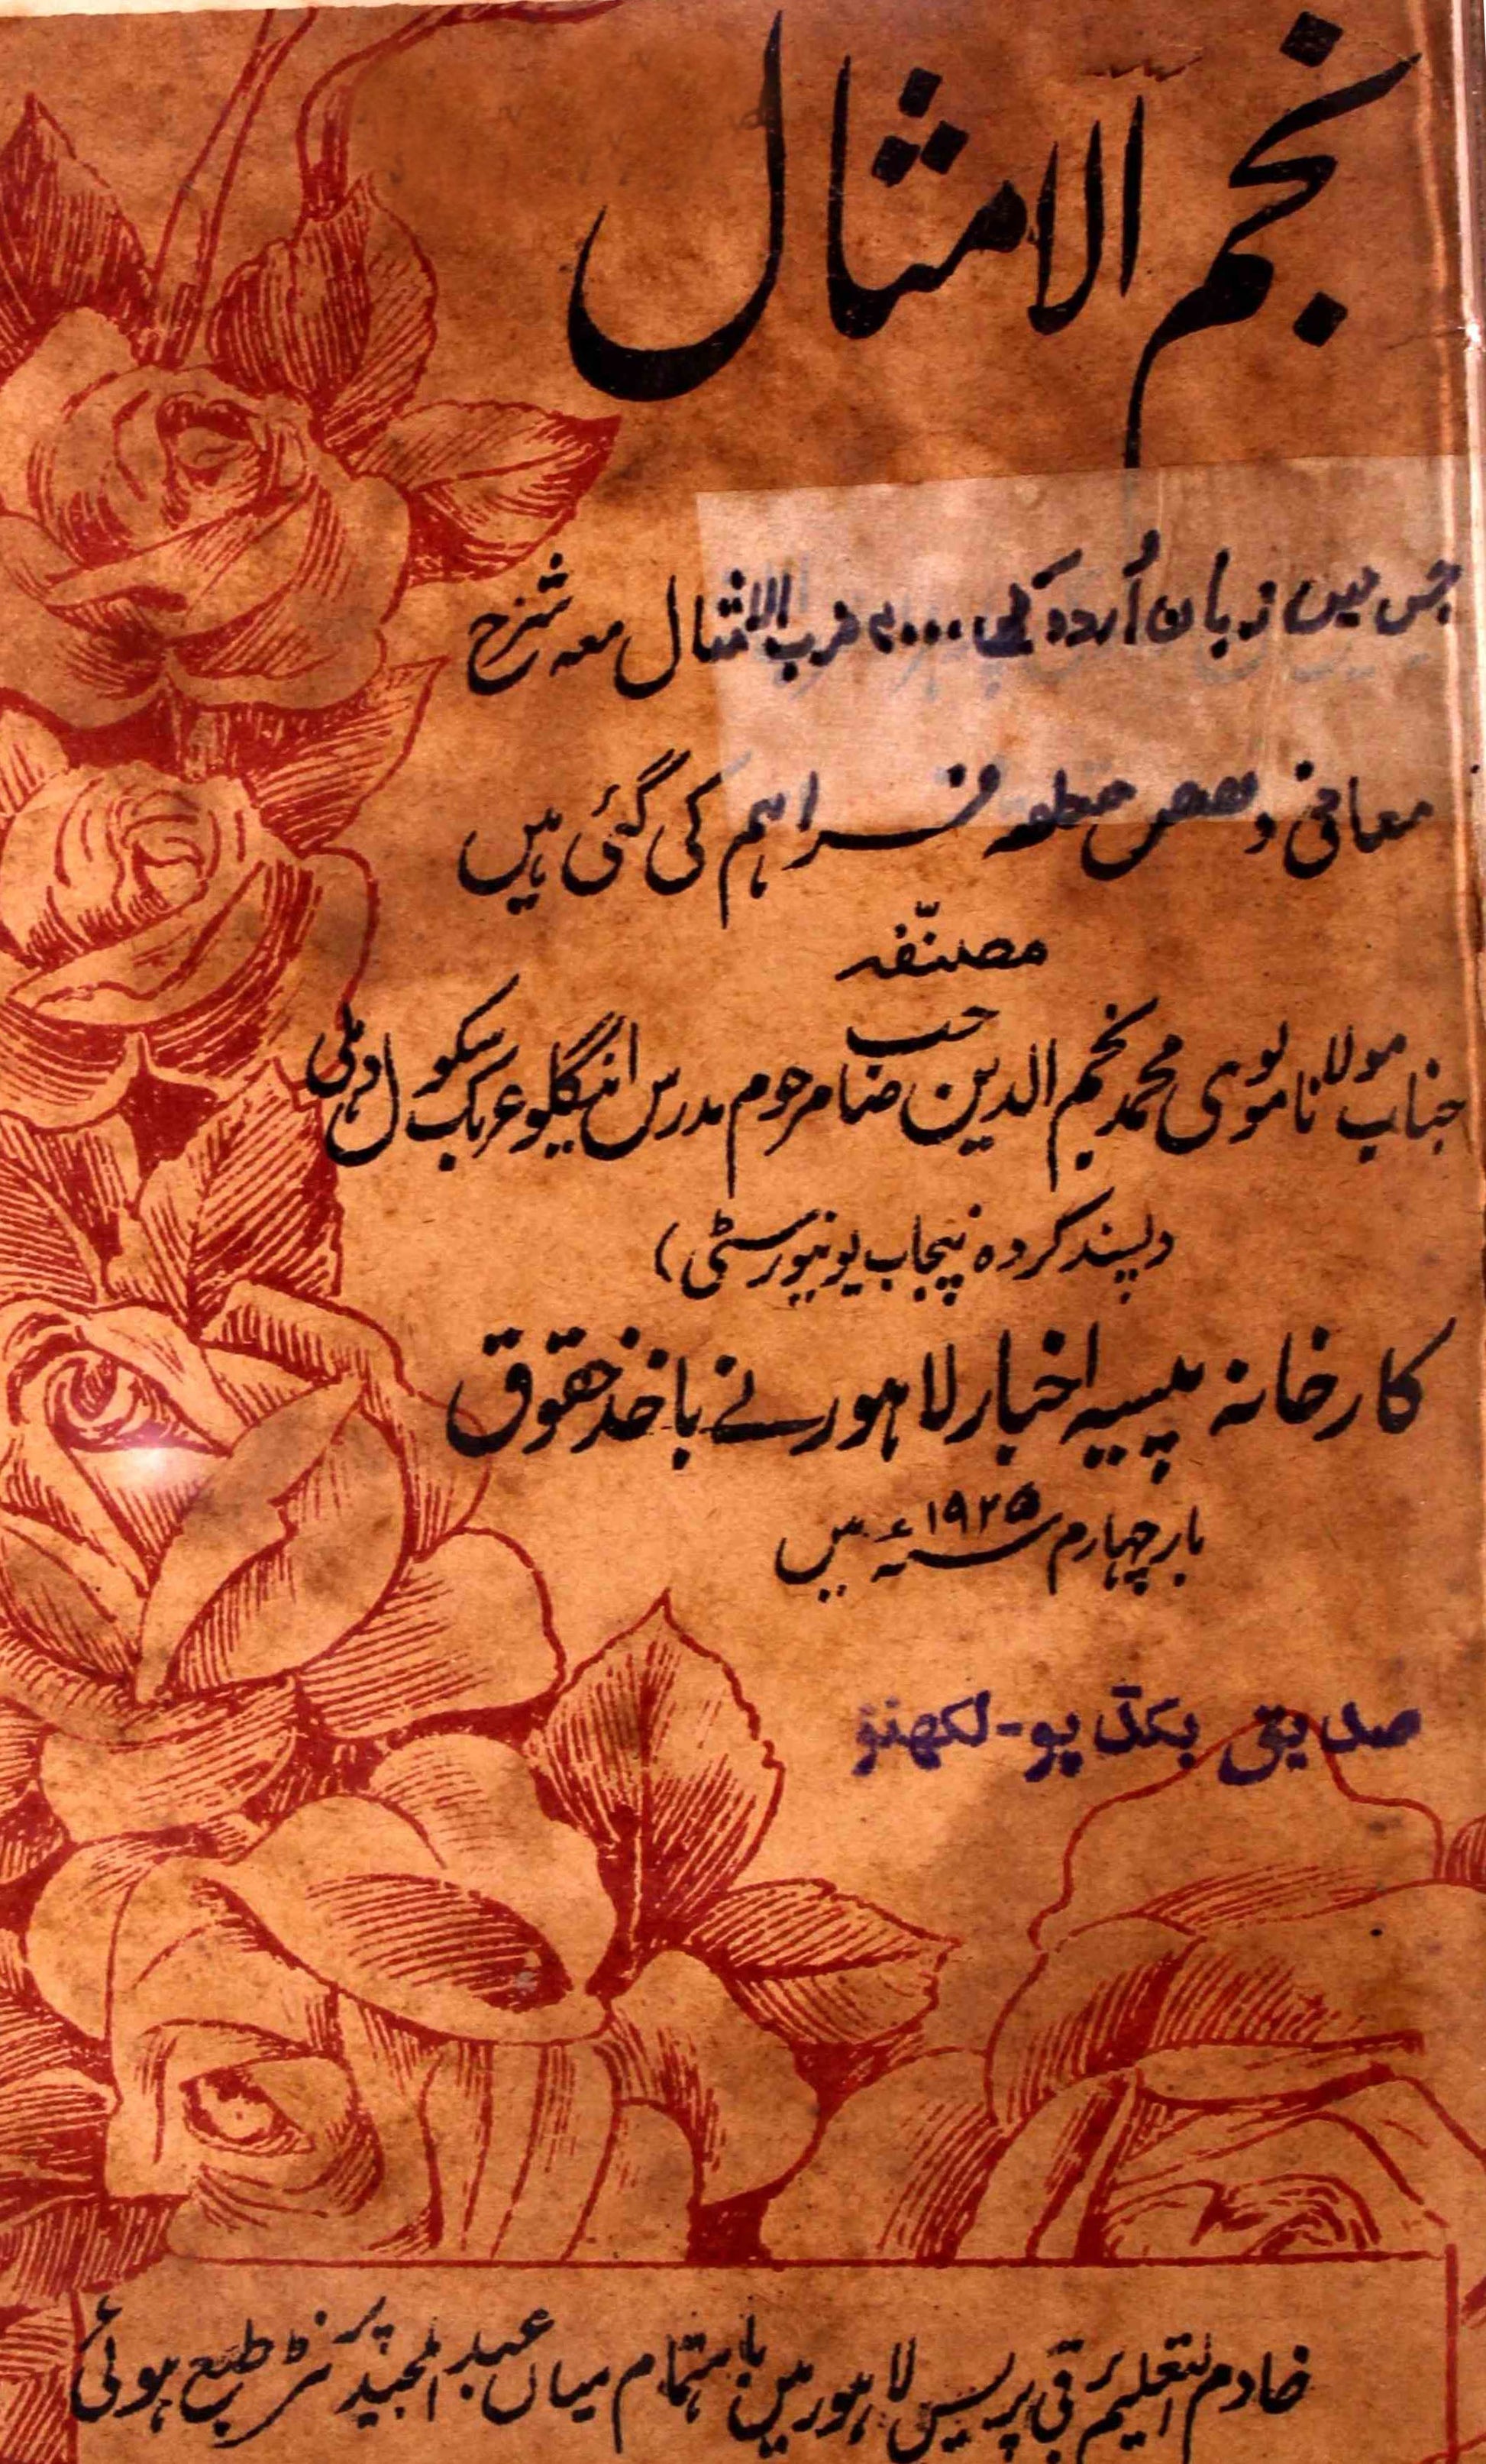 نجم الامثال
جس میں زبان اُردو کی ۴۰۰۰ ضرب الامثال معہ شرح
معانی و قصص متعلقہ فراہم کی گئی ہیں
مصنّفہ
جناب مولانا مولوی محمد نجم الدین صاحب مرحوم مدرس اینگلو عربک سکول دہلی
(پسند کردہ پنجاب یونیورسٹی)
کارخانہ پیسہ اخبار لاہور نے باخذ حقوق
بار چہارم ۱۹۲۵ء میں
صدیقی بکڈپو - لکھنؤ
خادم التعلیم برقی پریس لاہور میں باہتمام میاں عبد المجید پرنٹر طبع ہوئی